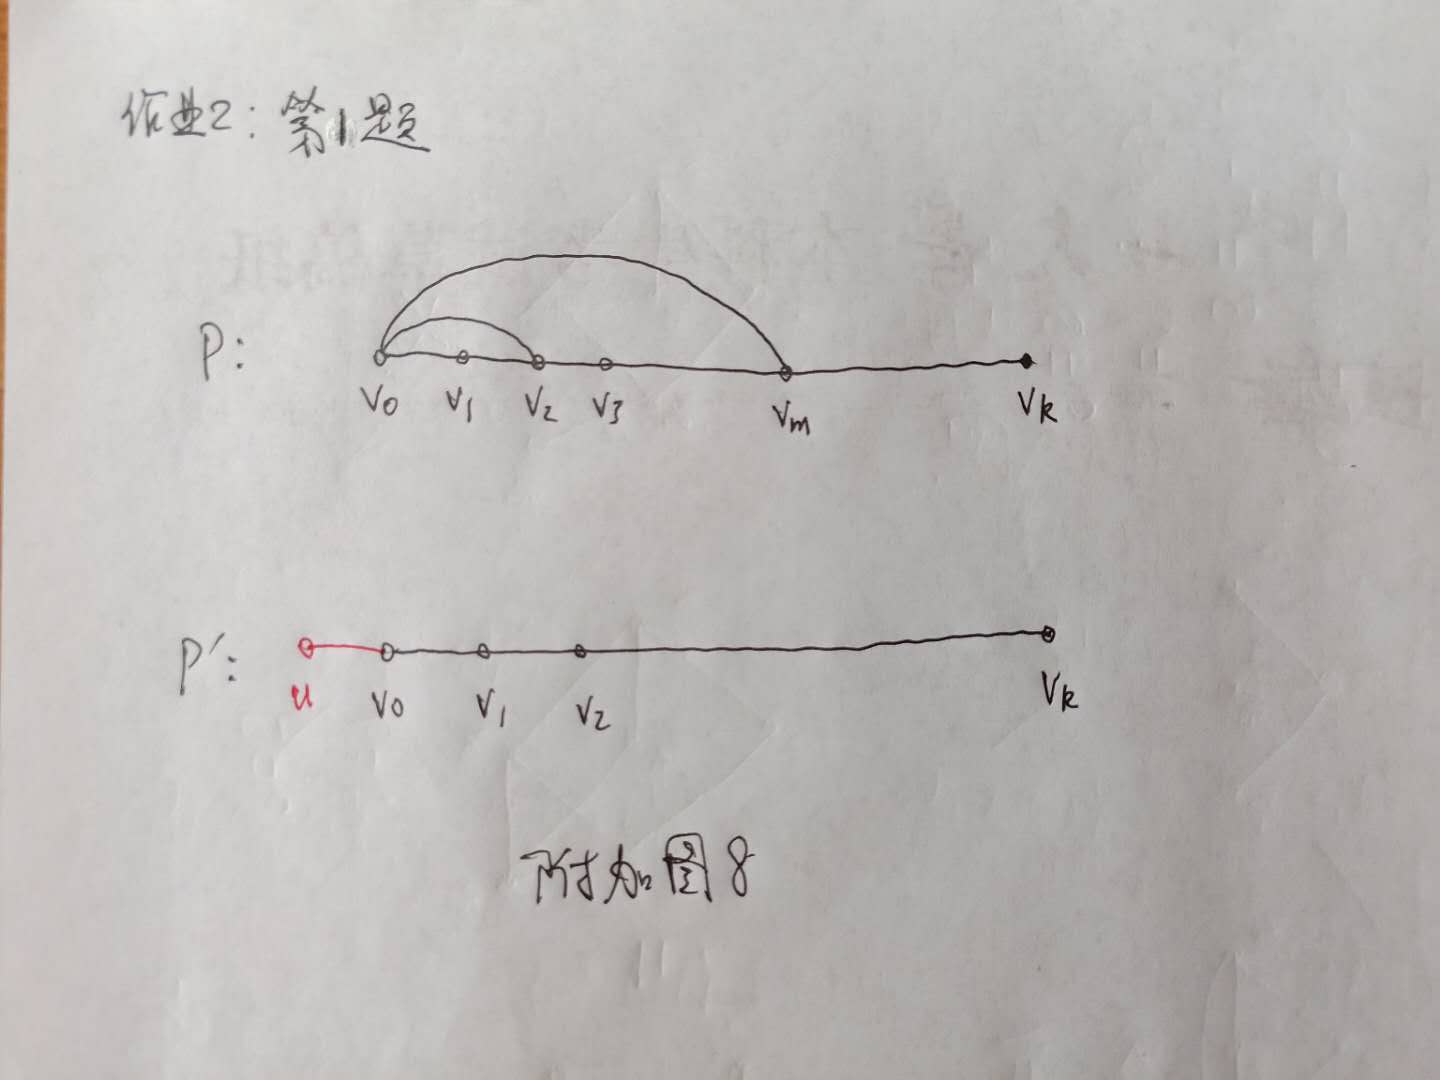 作业2：第1题
P:
V0 V1 V2 V3 Vm Vk
P′:
u V0 V1 V2 Vk
附加图8